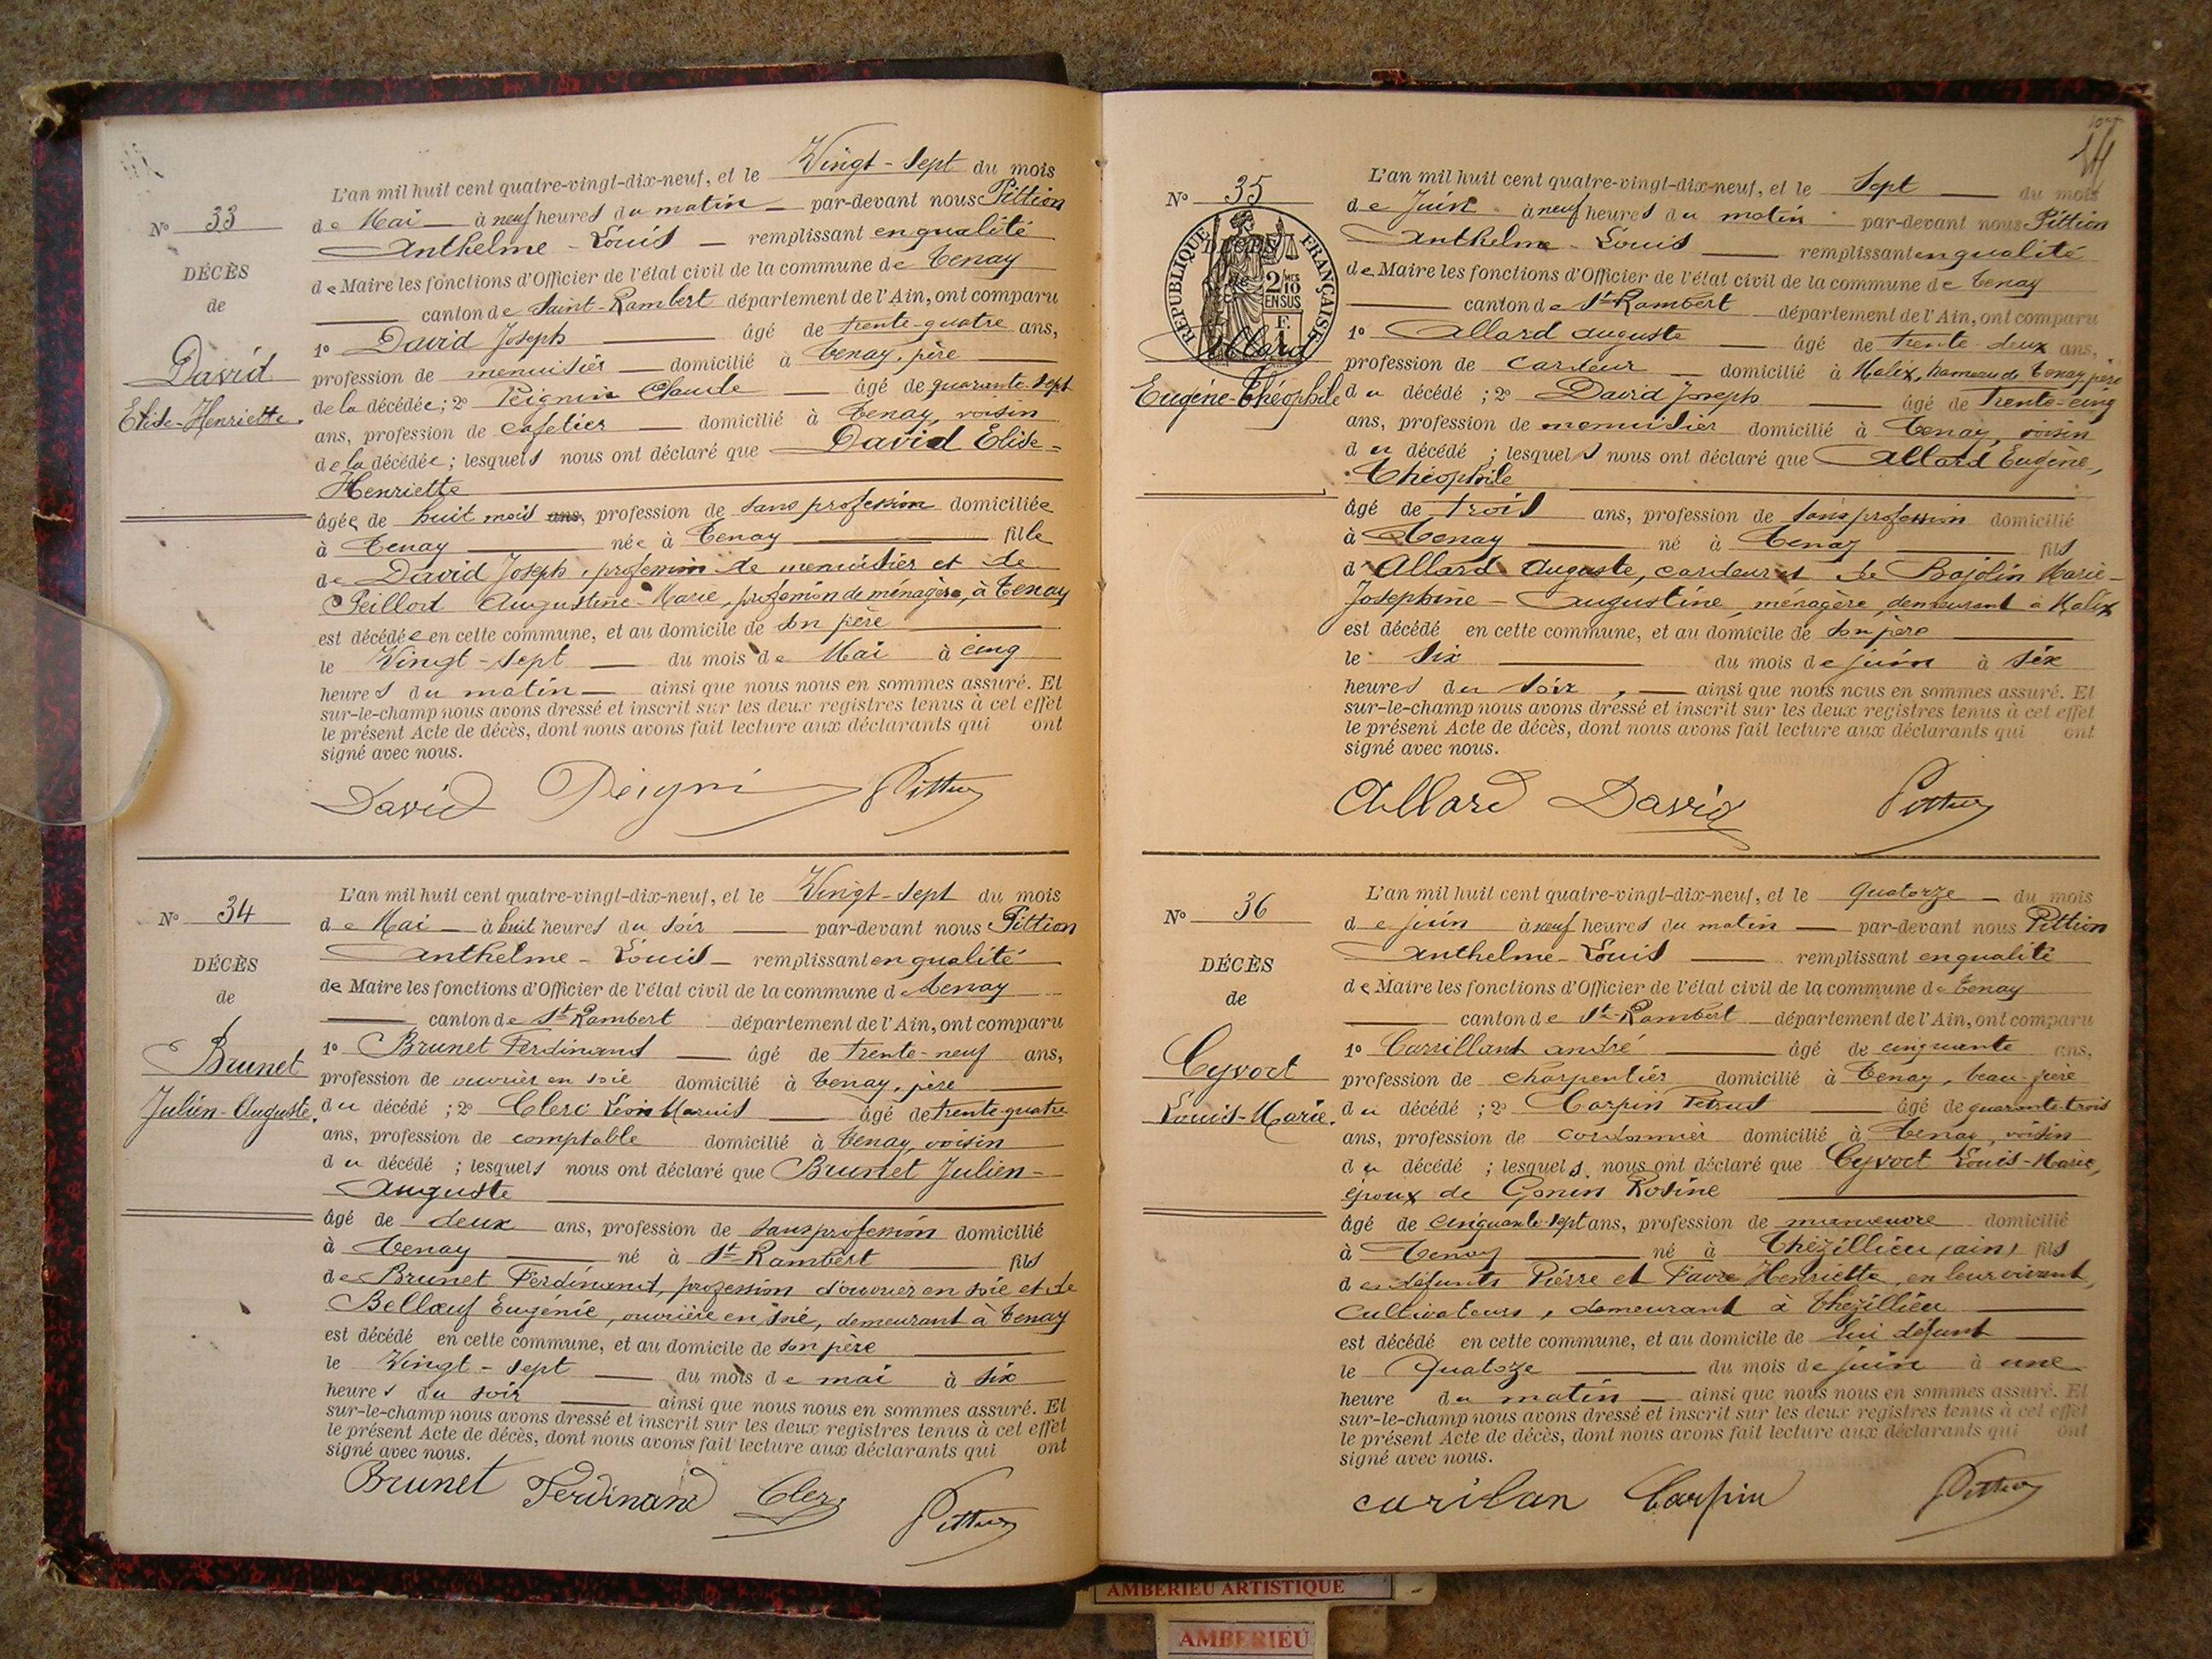 L'an mil huit cent quatre-vingt-dix-neuf, et le Vingt-sept du mois
No 33
de Mai à neuf heures du matin par-devant nous Pittion
Anthelme-Louis remplissant en qualité
DÉCÈS
de Maire les fonctions d'Officier de l'état civil de la commune de Tenay
de
canton de Saint-Rambert département de l'Ain, ont comparu
David
1º David Joseph âgé de trente-quatre ans,
Elise-Henriette.
profession de menuisier domicilié à Tenay, père
de la décédée; 2º Peignin Claude âgé de quarante-sept
ans, profession de cafetier domicilié à Tenay, voisin
de la décédée; lesquels nous ont déclaré que David Elise-
Henriette
âgée de huit mois ans, profession de sans profession domiciliée
à Tenay née à Tenay fille
de David Joseph, profession de menuisier et de
Peillod Augustine-Marie, profession de ménagère, à Tenay
est décédée en cette commune, et au domicile de son père
le Vingt-sept du mois de Mai à cinq
heures du matin ainsi que nous nous en sommes assuré. Et
sur-le-champ nous avons dressé et inscrit sur les deux registres tenus à cet effet
le présent Acte de décès, dont nous avons fait lecture aux déclarants qui ont
signé avec nous.
David Peigni Pittion
L'an mil huit cent quatre-vingt-dix-neuf, et le Vingt-sept du mois
No 34
de Mai à huit heures du soir par-devant nous Pittion
Anthelme-Louis remplissant en qualité
DÉCÈS
de Maire les fonctions d'Officier de l'état civil de la commune de Tenay
de
canton de St-Rambert département de l'Ain, ont comparu
Brunet
1º Brunet Ferdinand âgé de trente-neuf ans,
Julien-Auguste.
profession de ouvrier en soie domicilié à Tenay, père
du décédé; 2º Clerc Léon Marius âgé de trente-quatre
ans, profession de comptable domicilié à Tenay, voisin
du décédé; lesquels nous ont déclaré que Brunet Julien-
Auguste
âgé de deux ans, profession de sans profession domicilié
à Tenay né à St-Rambert fils
de Brunet Ferdinand, profession d'ouvrier en soie et de
Bellœuf Eugénie, ouvrière en soie, demeurant à Tenay
est décédé en cette commune, et au domicile de son père
le Vingt-sept du mois de mai à six
heures du soir ainsi que nous nous en sommes assuré. Et
sur-le-champ nous avons dressé et inscrit sur les deux registres tenus à cet effet
le présent Acte de décès, dont nous avons fait lecture aux déclarants qui ont
signé avec nous.
Brunet Ferdinand Clerc Pittion
L'an mil huit cent quatre-vingt-dix-neuf, et le Sept du mois
No 35
de Juin à neuf heures du matin par-devant nous Pittion
Anthelme-Louis remplissant en qualité
RÉPUBLIQUE FRANÇAISE
DÉCÈS
de
2/10 EN SUS
de Maire les fonctions d'Officier de l'état civil de la commune de Tenay
canton de St-Rambert département de l'Ain, ont comparu
Allard
1º Allard Auguste âgé de trente-deux ans,
Eugène-Théophile
profession de cardeur domicilié à Malix, hameau de Tenay, père
du décédé; 2º David Joseph âgé de trente-cinq
ans, profession de menuisier domicilié à Tenay, voisin
du décédé; lesquels nous ont déclaré que Allard Eugène,
Théophile
âgé de trois ans, profession de sans profession domicilié
à Tenay né à Tenay fils
d'Allard Auguste, cardeur et de Bajolin Marie-
Josephine-Augustine, ménagère, demeurant à Malix
est décédé en cette commune, et au domicile de son père
le six du mois de juin à six
heures du soir, ainsi que nous nous en sommes assuré. Et
sur-le-champ nous avons dressé et inscrit sur les deux registres tenus à cet effet
le présent Acte de décès, dont nous avons fait lecture aux déclarants qui ont
signé avec nous.
Allard David Pittion
L'an mil huit cent quatre-vingt-dix-neuf, et le quatorze du mois
No 36
de juin à neuf heures du matin par-devant nous Pittion
Anthelme-Louis remplissant en qualité
DÉCÈS
de Maire les fonctions d'Officier de l'état civil de la commune de Tenay
de
canton de St-Rambert département de l'Ain, ont comparu
Cyvoct
1º Carrilland André âgé de cinquante ans,
Louis-Marie.
profession de charpentier domicilié à Tenay, beau-frère
du décédé; 2º Carpin Petrus âgé de quarante-trois
ans, profession de cordonnier domicilié à Tenay, voisin
du décédé; lesquels nous ont déclaré que Cyvoct Louis-Marie,
époux de Gonin Rosine
âgé de cinquante-sept ans, profession de manœuvre domicilié
à Tenay né à Thézillieu (ain) fils
des défunts Pierre et Favre Henriette, en leur vivant,
cultivateurs, demeurant à Thézillieu
est décédé en cette commune, et au domicile de lui défunt
le Quatoze du mois de juin à une
heure du matin ainsi que nous nous en sommes assuré. Et
sur-le-champ nous avons dressé et inscrit sur les deux registres tenus à cet effet
le présent Acte de décès, dont nous avons fait lecture aux déclarants qui ont
signé avec nous.
carilan Carpin Pittion
AMBERIEU ARTISTIQUE
AMBERIEU